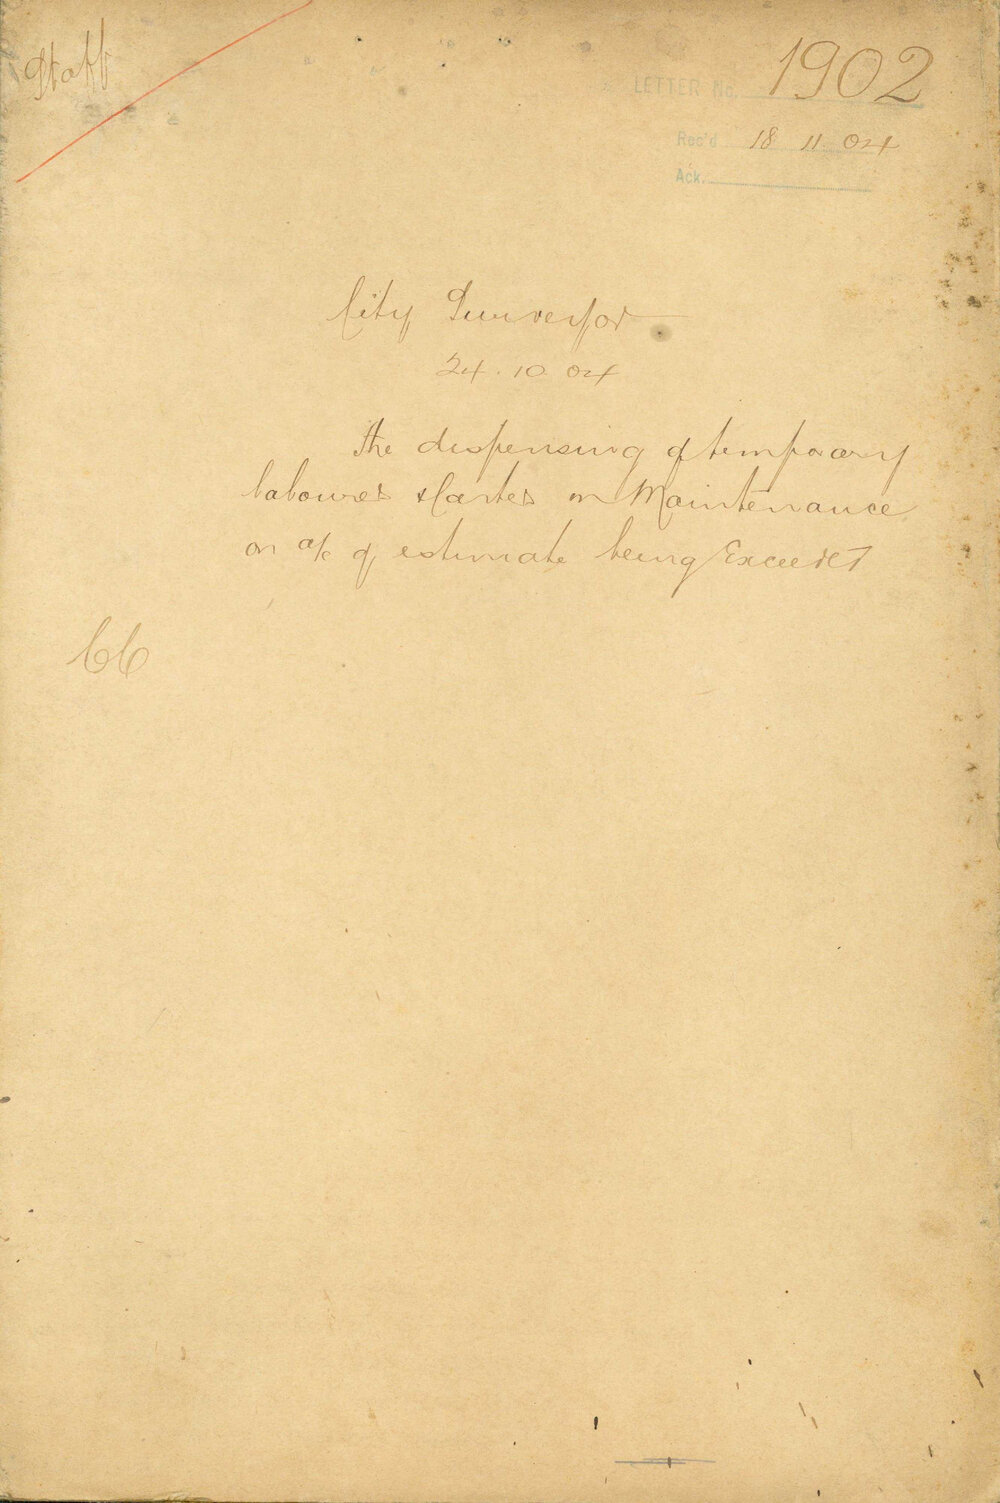 Staff
LETTER No. 1902
Rec'd 18 11 04
Ack.
City Surveyor
24.10.04
The dispensing of temporary
laboures & Carters on Maintenance
on a/c of estimate being Exceeded
66